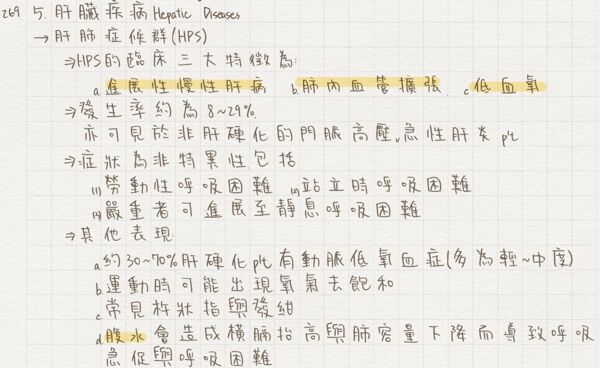 269 5. 肝臟疾病 Hepatic Diseases
→肝肺症候群(HPS)
⇒HPS的臨床三大特徵為:
a.進展性慢性肝病 b.肺內血管擴張 c.低血氧
⇒發生率約為8~29%
亦可見於非肝硬化的門脈高壓、急性肝炎pt
⇒症狀為非特異性,包括
(1)勞動性呼吸困難 (2)站立時呼吸困難
(3)嚴重者可進展至靜息呼吸困難
⇒其他表現:
a.約30~70%肝硬化pt有動脈低氧血症(多為輕~中度)
b.運動時可能出現氧氣去飽和
c.常見杵狀指與發紺
d.腹水會造成橫膈抬高與肺容量下降而導致呼吸
急促與呼吸困難